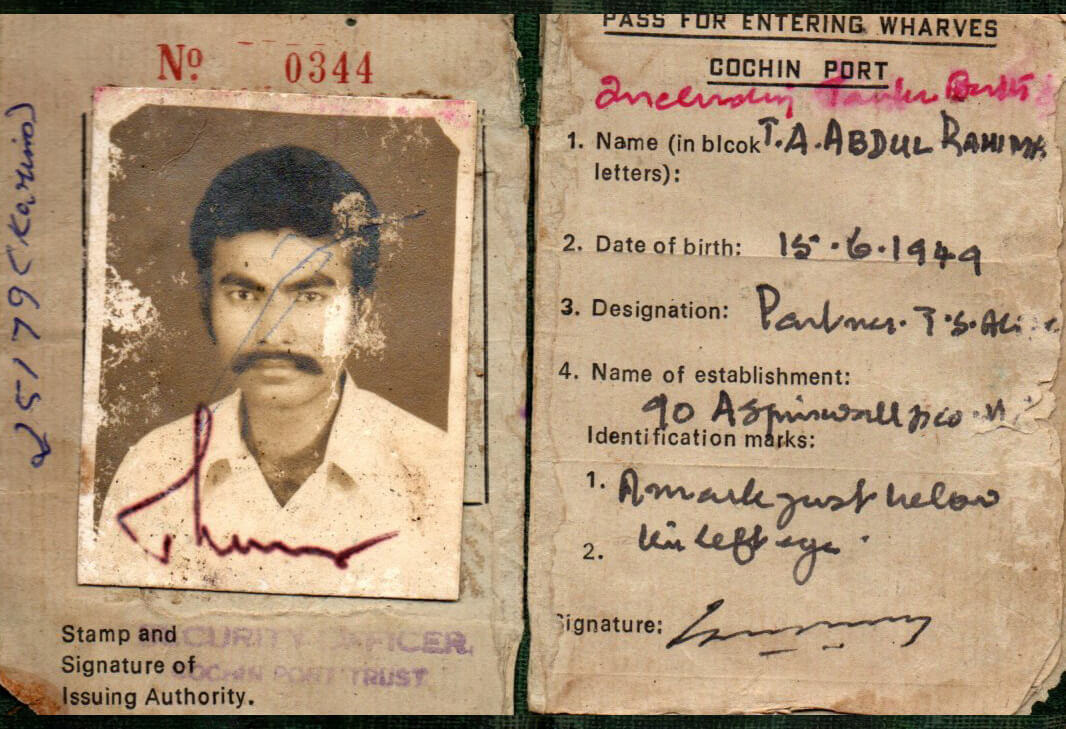 Nº 0344
25179 (Karim)
Stamp and
Signature of
Issuing Authority.
SECURITY OFFICER,
COCHIN PORT TRUST
PASS FOR ENTERING WHARVES
COCHIN PORT
Including Tanker Berth
1. Name (in blcok T.A. ABDUL RAHIMAN
letters):
2. Date of birth: 15.6.1949
3. Designation: Partner. T.S. Ali
4. Name of establishment:
90 Aspinwall &co.
Identification marks:
1. A mark just below
2. his left eye.
Signature: